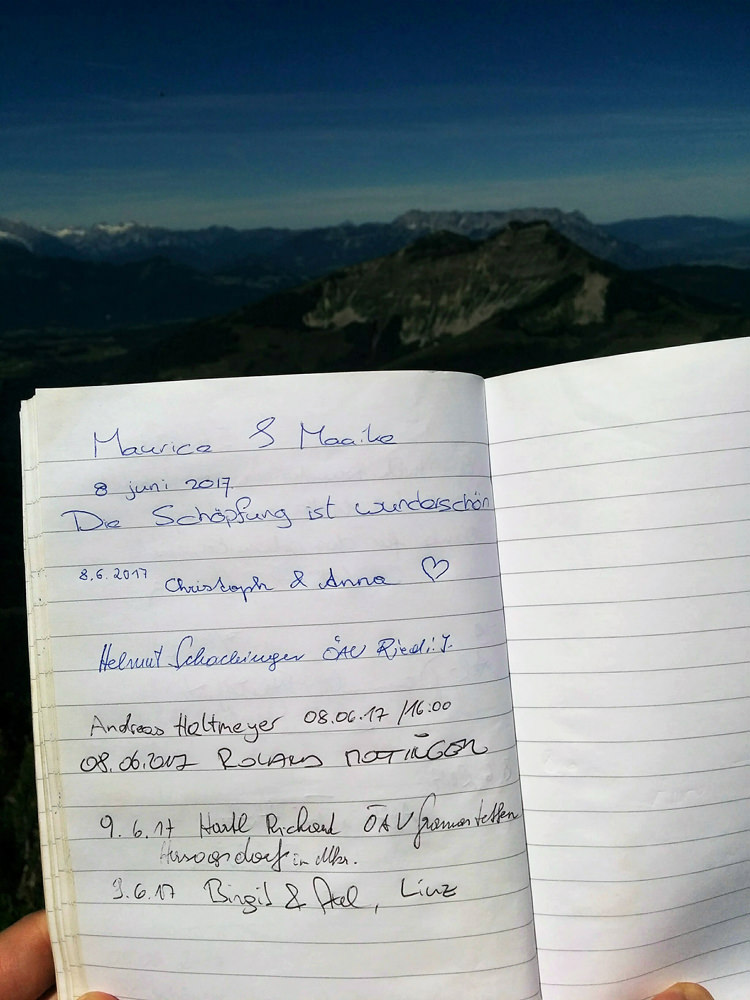 Maurice & Maaike
8 juni 2017
Die Schöpfung ist wunderschön
8.6.2017 Christoph & Anna ♡
Helmut Schachinger ÖAV Ried i. I.
Andreas Holtmeyer 08.06.17 /16:00
08.06.2017 ROLAND
9.6.17 Hartl Richard ÖAV
in Mkr.
9.6.17 Birgit & Axel, Linz